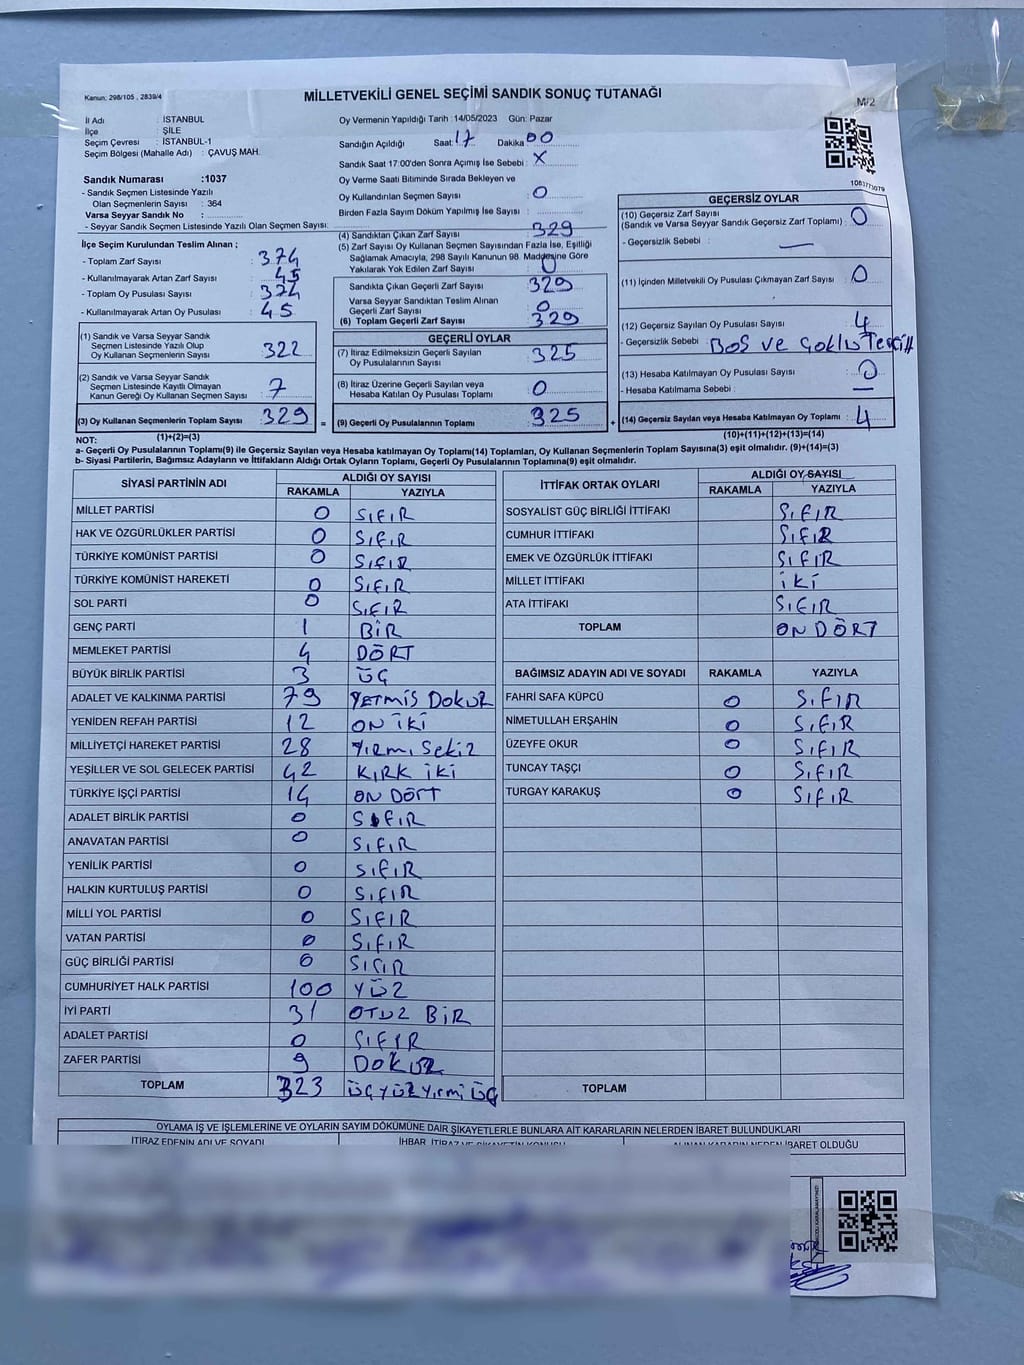 Kanun: 298/105 , 2839/4
MİLLETVEKİLİ GENEL SEÇİMİ SANDIK SONUÇ TUTANAĞI
M/2
İl Adı : İSTANBUL
İlçe : ŞİLE
Seçim Çevresi : İSTANBUL-1
Seçim Bölgesi (Mahalle Adı) : ÇAVUŞ MAH.
Oy Vermenin Yapıldığı Tarih :14/05/2023 Gün: Pazar
Sandığın Açıldığı Saat: 17 Dakika 00
Sandık Saat 17:00'den Sonra Açımış İse Sebebi : X
Oy Verme Saati Bitiminde Sırada Bekleyen ve
Oy Kullandırılan Seçmen Sayısı : 0
Birden Fazla Sayım Döküm Yapılmış İse Sayısı :
Sandık Numarası :1037
- Sandık Seçmen Listesinde Yazılı
Olan Seçmenlerin Sayısı : 364
Varsa Seyyar Sandık No :
- Seyyar Sandık Seçmen Listesinde Yazılı Olan Seçmen Sayısı:
İlçe Seçim Kurulundan Teslim Alınan ;
- Toplam Zarf Sayısı : 374
- Kullanılmayarak Artan Zarf Sayısı : 45
- Toplam Oy Pusulası Sayısı : 374
- Kullanılmayarak Artan Oy Pusulası : 45
(1) Sandık ve Varsa Seyyar Sandık
Seçmen Listesinde Yazılı Olup
Oy Kullanan Seçmenlerin Sayısı : 322
(2) Sandık ve Varsa Seyyar Sandık
Seçmen Listesinde Kayıtlı Olmayan
Kanun Gereği Oy Kullanan Seçmen Sayısı : 7
(3) Oy Kullanan Seçmenlerin Toplam Sayısı : 329
(1)+(2)=(3)
(4) Sandıktan Çıkan Zarf Sayısı : 329
(5) Zarf Sayısı Oy Kullanan Seçmen Sayısından Fazla İse, Eşitliği
Sağlamak Amacıyla, 298 Sayılı Kanunun 98. Maddesine Göre
Yakılarak Yok Edilen Zarf Sayısı : 0
Sandıkta Çıkan Geçerli Zarf Sayısı : 329
Varsa Seyyar Sandıktan Teslim Alınan
Geçerli Zarf Sayısı : 0
(6) Toplam Geçerli Zarf Sayısı : 329
GEÇERLİ OYLAR
(7) İtiraz Edilmeksizin Geçerli Sayılan
Oy Pusulalarının Sayısı : 325
(8) İtiraz Üzerine Geçerli Sayılan veya
Hesaba Katılan Oy Pusulası Toplamı : 0
= (9) Geçerli Oy Pusulalarının Toplamı : 325
1083773079
GEÇERSİZ OYLAR
(10) Geçersiz Zarf Sayısı : 0
(Sandık ve Varsa Seyyar Sandık Geçersiz Zarf Toplamı)
- Geçersizlik Sebebi : —
(11) İçinden Milletvekili Oy Pusulası Çıkmayan Zarf Sayısı : 0
(12) Geçersiz Sayılan Oy Pusulası Sayısı : 4
- Geçersizlik Sebebi : BOŞ ve ÇOKLU Tercih
(13) Hesaba Katılmayan Oy Pusulası Sayısı : 0
- Hesaba Katılmama Sebebi : —
+ (14) Geçersiz Sayılan veya Hesaba Katılmayan Oy Toplamı : 4
(10)+(11)+(12)+(13)=(14)
NOT:
a- Geçerli Oy Pusulalarının Toplamı(9) ile Geçersiz Sayılan veya Hesaba katılmayan Oy Toplamı(14) Toplamları, Oy Kullanan Seçmenlerin Toplam Sayısına(3) eşit olmalıdır. (9)+(14)=(3)
b- Siyasi Partilerin, Bağımsız Adayların ve İttifakların Aldığı Ortak Oyların Toplamı, Geçerli Oy Pusulalarının Toplamına(9) eşit olmalıdır.
SİYASİ PARTİNİN ADI
ALDIĞI OY SAYISI
RAKAMLA YAZIYLA
MİLLET PARTİSİ 0 SIFIR
HAK VE ÖZGÜRLÜKLER PARTİSİ 0 SIFIR
TÜRKİYE KOMÜNİST PARTİSİ 0 SIFIR
TÜRKİYE KOMÜNİST HAREKETİ 0 SIFIR
SOL PARTİ 0 SIFIR
GENÇ PARTİ 1 BİR
MEMLEKET PARTİSİ 4 DÖRT
BÜYÜK BİRLİK PARTİSİ 3 ÜÇ
ADALET VE KALKINMA PARTİSİ 79 YETMİS DOKUZ
YENİDEN REFAH PARTİSİ 12 ON İKİ
MİLLİYETÇİ HAREKET PARTİSİ 28 Yirmi Sekiz
YEŞİLLER VE SOL GELECEK PARTİSİ 42 KIRK İKİ
TÜRKİYE İŞÇİ PARTİSİ 14 ON DÖRT
ADALET BİRLİK PARTİSİ 0 SIFIR
ANAVATAN PARTİSİ 0 SIFIR
YENİLİK PARTİSİ 0 SIFIR
HALKIN KURTULUŞ PARTİSİ 0 SIFIR
MİLLİ YOL PARTİSİ 0 SIFIR
VATAN PARTİSİ 0 SIFIR
GÜÇ BİRLİĞİ PARTİSİ 0 SIFIR
CUMHURİYET HALK PARTİSİ 100 YÜZ
İYİ PARTİ 31 OTUZ BİR
ADALET PARTİSİ 0 SIFIR
ZAFER PARTİSİ 9 DOKUZ
TOPLAM 323 ÜÇYÜZ Yirmi ÜÇ
İTTİFAK ORTAK OYLARI
ALDIĞI OY SAYISI
RAKAMLA YAZIYLA
SOSYALİST GÜÇ BİRLİĞİ İTTİFAKI SIFIR
CUMHUR İTTİFAKI SIFIR
EMEK VE ÖZGÜRLÜK İTTİFAKI SIFIR
MİLLET İTTİFAKI İKİ
ATA İTTİFAKI SIFIR
TOPLAM ON DÖRT
BAĞIMSIZ ADAYIN ADI VE SOYADI RAKAMLA YAZIYLA
FAHRİ SAFA KÜPCÜ 0 SIFIR
NİMETULLAH ERŞAHİN 0 SIFIR
ÜZEYFE OKUR 0 SIFIR
TUNCAY TAŞÇI 0 SIFIR
TURGAY KARAKUŞ 0 SIFIR
TOPLAM
OYLAMA İŞ VE İŞLEMLERİNE VE OYLARIN SAYIM DÖKÜMÜNE DAİR ŞİKAYETLERLE BUNLARA AİT KARARLARIN NELERDEN İBARET BULUNDUKLARI
İTİRAZ EDENİN ADI VE SOYADI
İHBAR, İTİRAZ VE ŞİKAYETİN KONUSU
ALINAN KARARIN NEDEN İBARET OLDUĞU